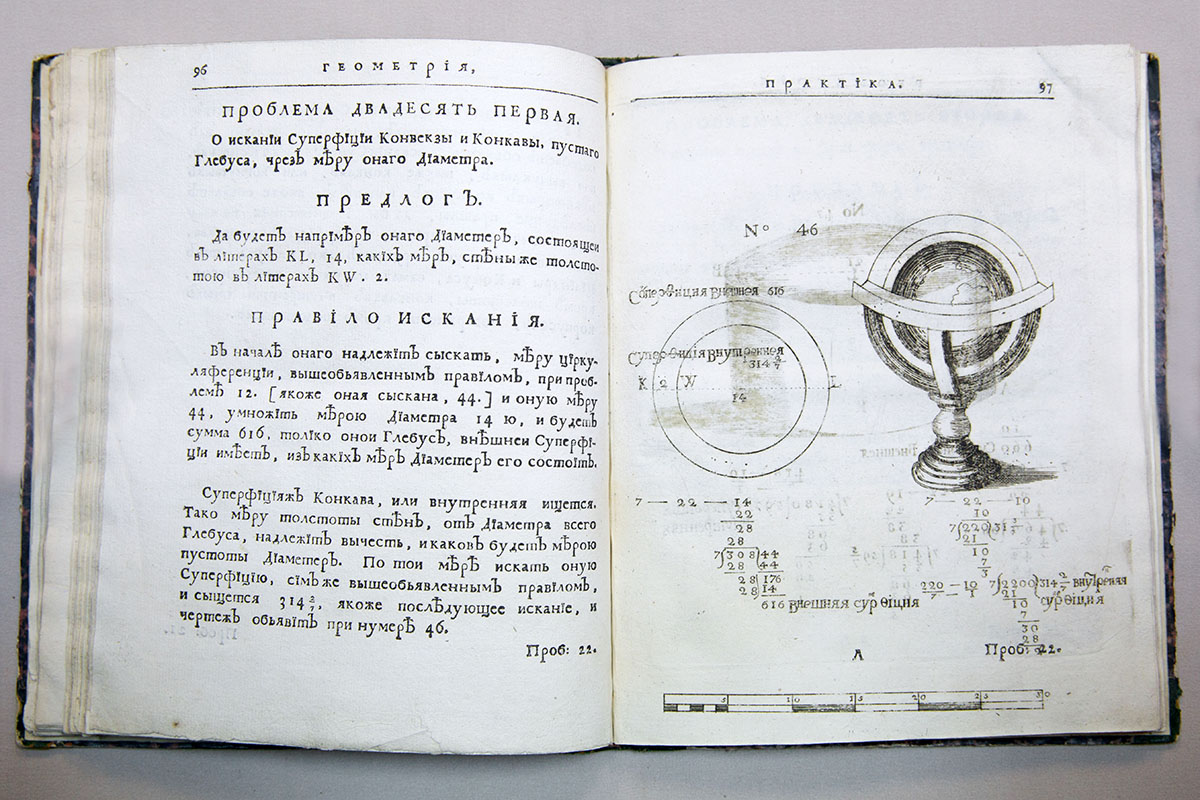 96
ГЕОМЕТРІЯ,
ПРОБЛЕМА ДВАДЕСЯТЬ ПЕРВАЯ.
О исканїи Суперфїцїи Конвекзы и Конкавы, пустаго
Глебуса, чрезЪ мѢру онаго Дїаметра.
ПРЕДЛОГЪ.
Да будетЪ напрїмѢрЪ онаго Дїаметерѣ, состоящеи
вЪ лїтерахЪ KL, 14, какїхЪ мѢрЪ, стѢны же толсто-
тою вЪ лїтерахЪ KW. 2.
ПРАВІЛО ИСКАНІЯ.
ВЪ началѢ онаго надлежїтЪ сыскать, мѢру цїрку-
ляференцїи, вышеобьявленнымЪ правїломЪ, при проб-
лемѢ 12. [якоже оная сыскана, 44.] и оную мѢру
44, умножїть мѢрою Дїаметра 14 ю, и будетЪ
сумма 616, толїко онои ГлебусЪ, внѢшнеи Суперфї-
цїи имѢетЪ, изЪ какїхЪ мѢрЪ ДїаметерЪ его состоїтЪ.
СуперфїцїяжЪ Конкава, или внутренняя ищется.
Тако мѢру толстоты стѢнЪ, отЪ Дїаметра всего
Глебуса, надлежїтЪ вычесть, и каковЪ будетЪ мѢрою
пустоты ДїаметерЪ. По тои мѢрѢ искать оную
Суперфїцїю, сїмЪ же вышеобьявленнымЪ правїломЪ,
и сыщется 314 2/7, якоже послѢдующее исканїе, и
чертежЪ обьявїтЪ при нумерѢ 46.
Проб: 22.
ПРАКТІКА.
97
No 46
Суперфиция Внешняя 616
Суперфиція Внутренняя
314 2/7
K 2 W L
14
7 — 22 — 14
22
28
28
7(308/44
28 44
28 176
28 14
616 внешняя сурѳиция
7 — 22 — 10
10
7(220/31 3/7
21
10
7
3
220/7 — 10/1 7(2200/314 2/7 внутреняя
21 сурѳиция
10
7
30
28
Проб: 22.
А
5 10 15 20 25 30